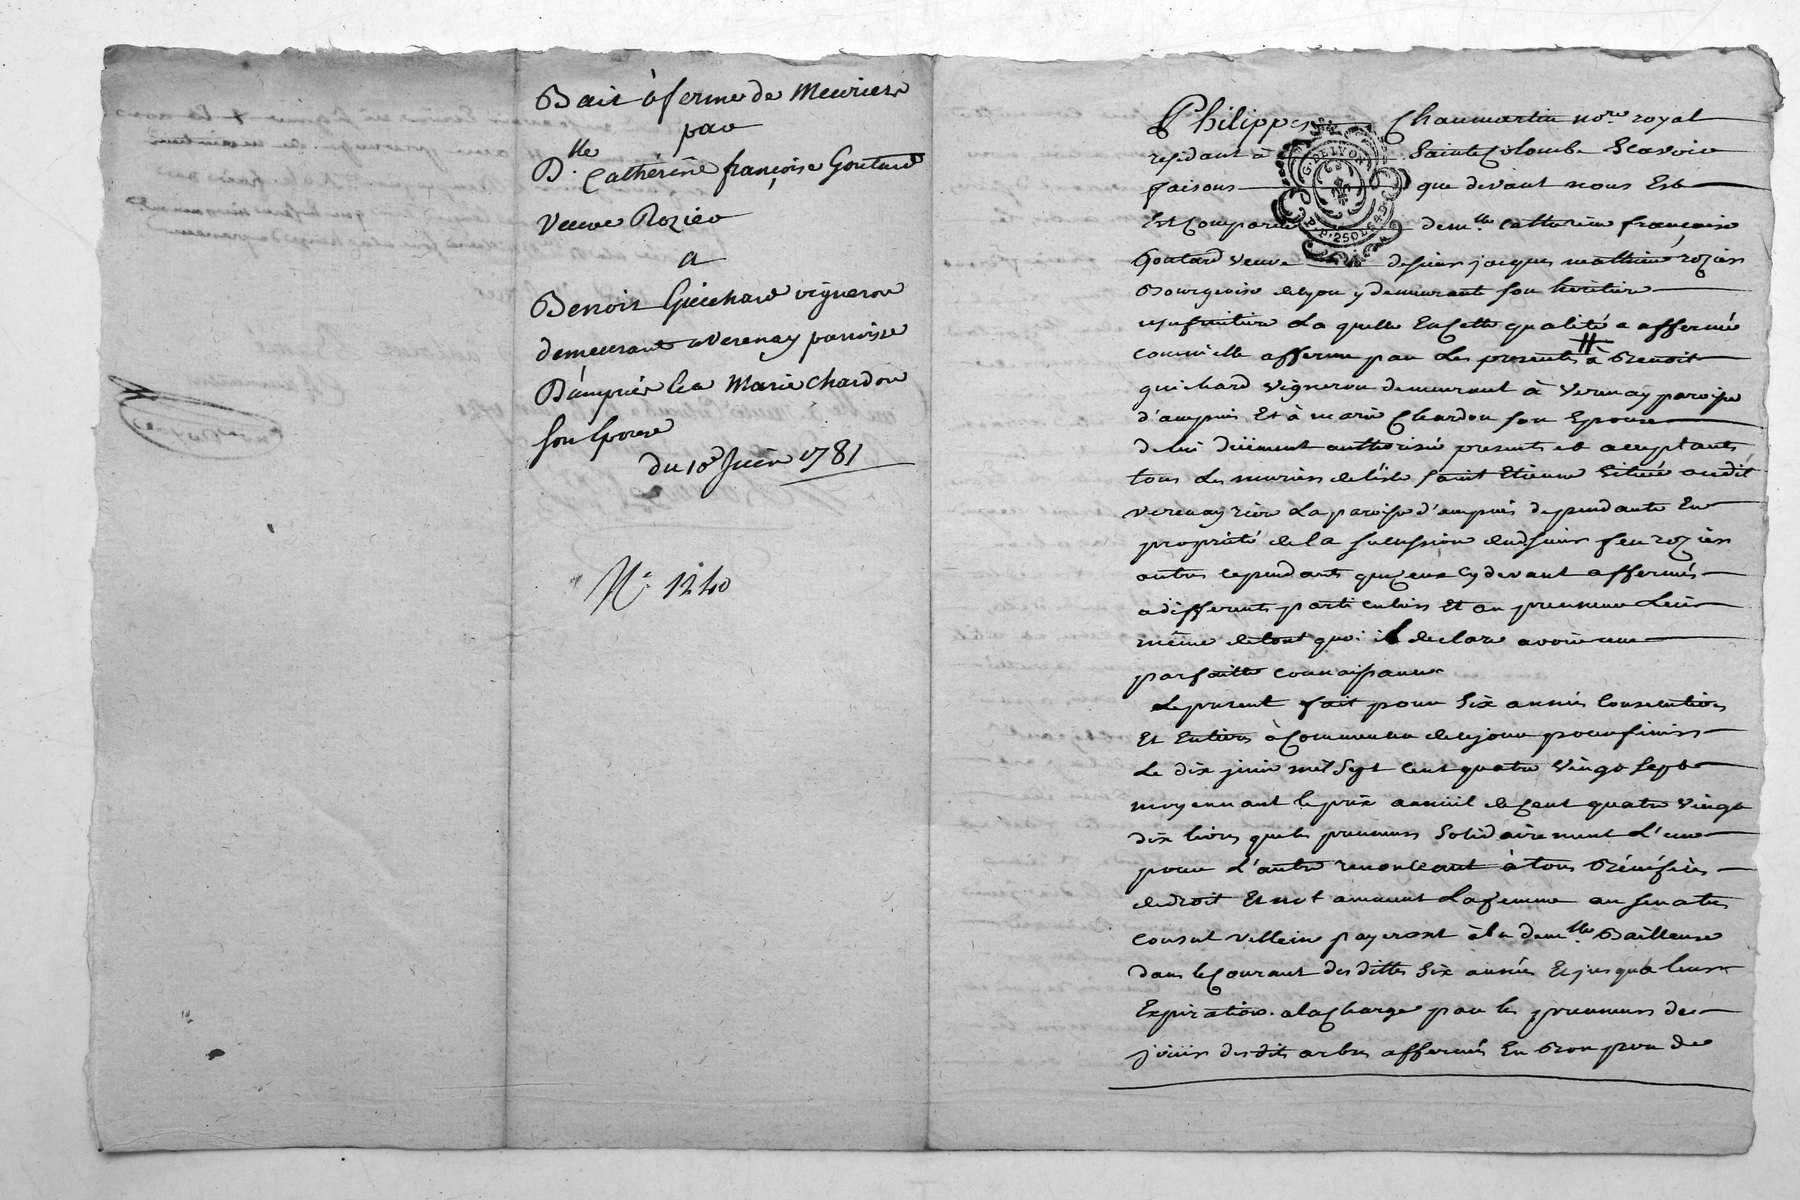 Bail à ferme de Meuriers
par
D.lle Catherine françoise Goutard
veuve Rozier
a
Benoit Guichard vigneron
demeurant a Verenay parroisse
D'ampuis et a Marie Chardon
son Epouse
du 10e Juin 1781
N.e 1240
Philippes Chaumartin no.re royal
residant à Sainte Colombe Scavoir
faisons que devant nous Est
Est Comparue dem.lle catherine francoise
Goutard veuve de sieur jacques mathieu rozier
Bourgeois de lyon y demeurante son heritiere
usufruitiere La quelle En cette qualité a affermé
comme elle afferme par Les presentes à Benoit
guichard vigneron demeurant à verenay paroisse
d'ampuis Et à marie Chardon son Epouse
de lui düement authorisée presents et acceptants
tous Les muriers de l'isle saint Etienne Située audit
verenay riere La paroisse d'ampuis dependante En
propriété de la succession dudit sieur feu rozier
autres cependants que ceux cy devant affermés
a differents particuliers Et au preneur Lui
même de tout quoi il declare avoir une
parfaitte connaissance
Le present fait pour Six années Consecutives
Et Entieres à Commencer de ce jour pour finir
Le dix juin mil Sept Cent quatre vingt Sept
moyennant le prix annuel de Cent quatre vingt
dix livres que les preneurs Solidairement L'un
pour L'autre renonceant à tous Bénéfices
de droit Et notamment La femme au senatus
consul velleien payeront à la dem.lle Bailleuse
dans le Courant des dittes Six années Et jusqu'a leur
Expiration. a la Charge par les preneurs de
jouir desdits arbres affermés En Bon pere de
G. DE LYON
P.P. 2 SOLS 4 D.